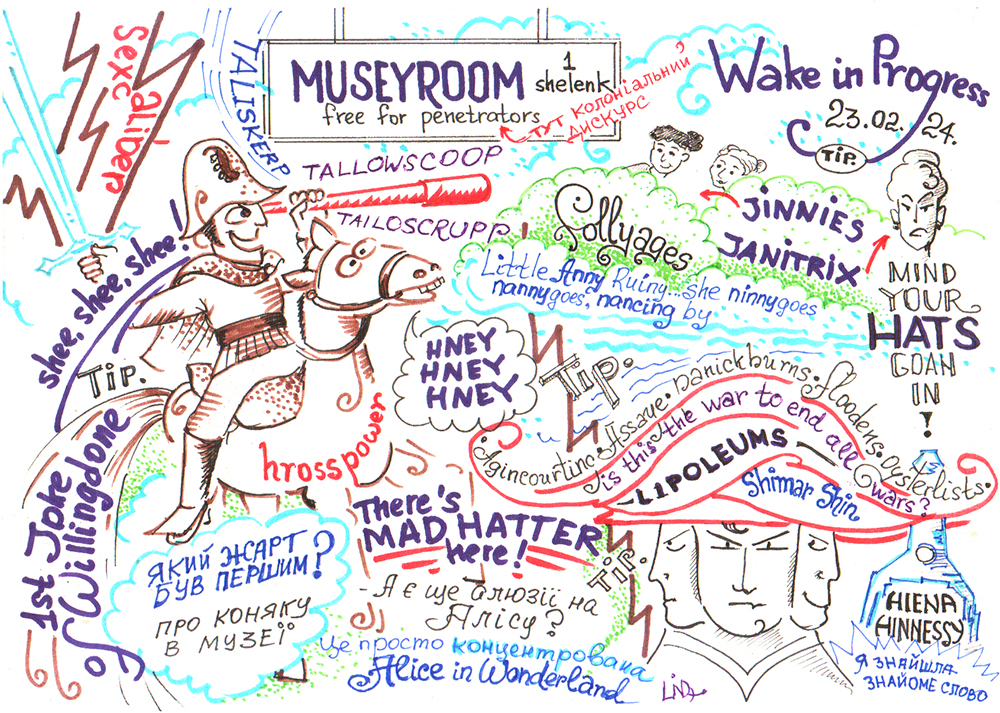 MUSEYROOM
1 shelenk
free for penetrators
ТУТ КОЛОНІАЛЬНИЙ
ДИСКУРС
Wake in Progress
23.02. 24.
Tip.
Sexcaliber
TALISKERP
TALLOWSCOOP
TAILOSCRUPP
shee, shee, shee!
Tip.
1st Joke
of Willingdone
Sollyages
JINNIES
JANITRIX
Little Anny Ruiny... she ninnygoes
nannygoes, nancing by
MIND
YOUR
HATS
GOAN
IN
!
HNEY
HNEY
HNEY
Tip.
hrosspower
Agincourting. Assaye. Danickburns. Floodens. Oysterlists.
is this the war to end all wars?
LIPOLEUMS
Shimar Shin
There's
MAD HATTER
here!
Tip.
ЯКИЙ ЖАРТ
БУВ ПЕРШИМ?
ПРО КОНЯКУ
В МУЗЕЇ
- А є ще алюзії на
Алісу?
Це просто концентрована
Alice in Wonderland
HIENA
HINNESSY
Я ЗНАЙШЛА
ЗНАЙОМЕ СЛОВО